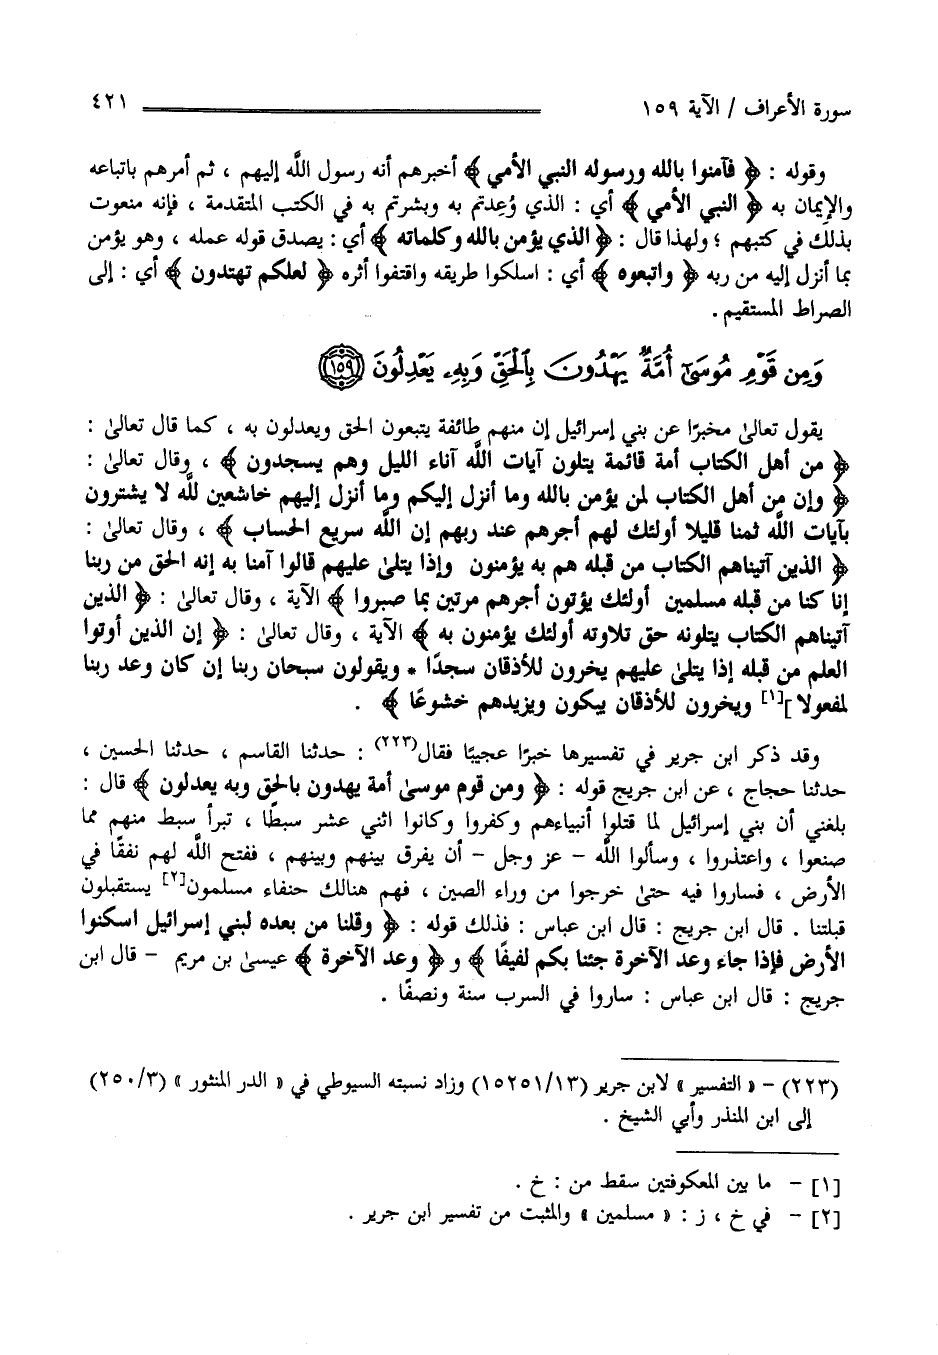 سورة الأعراف / الآية ١٥٩
٤٢١
وقوله : ﴿ فآمنوا بالله ورسوله النبي الأمي ﴾ أخبرهم أنه رسول اللَّه إليهم ، ثم أمرهم باتباعه
والإيمان به ﴿ النبي الأمي ﴾ أي : الذي وُعِدتم به وبشرتم به في الكتب المتقدمة ، فإنه منعوت
بذلك في كتبهم ؛ ولهذا قال : ﴿ الذي يؤمن بالله وكلماته ﴾ أي : يصدق قوله عمله ، وهو يؤمن
بما أنزل إليه من ربه ﴿ واتبعوه ﴾ أي : اسلكوا طريقه واقتفوا أثره ﴿ لعلكم تهتدون ﴾ أي : إلى
الصراط المستقيم .
وَمِن قَوْمِ مُوسَىٰٓ أُمَّةٌ يَهْدُونَ بِالْحَقِّ وَبِهِۦ يَعْدِلُونَ ﴿١٥٩﴾
يقول تعالىٰ مخبرًا عن بني إسرائيل إن منهم طائفة يتبعون الحق ويعدلون به ، كما قال تعالىٰ :
﴿ من أهل الكتاب أمة قائمة يتلون آيات اللَّه آناء الليل وهم يسجدون ﴾ ، وقال تعالىٰ :
﴿ وإن من أهل الكتاب لمن يؤمن بالله وما أنزل إليكم وما أنزل إليهم خاشعين للَّه لا يشترون
بآيات اللَّه ثمنا قليلا أولئك لهم أجرهم عند ربهم إن اللَّه سريع الحساب ﴾ ، وقال تعالىٰ :
﴿ الذين آتيناهم الكتاب من قبله هم به يؤمنون وإذا يتلىٰ عليهم قالوا آمنا به إنه الحق من ربنا
إنا كنا من قبله مسلمين أولئك يؤتون أجرهم مرتين بما صبروا ﴾ الآية ، وقال تعالىٰ : ﴿ الذين
آتيناهم الكتاب يتلونه حق تلاوته أولئك يؤمنون به ﴾ الآية ، وقال تعالىٰ : ﴿ إن الذين أوتوا
العلم من قبله إذا يتلىٰ عليهم يخرون للأذقان سجدًا * ويقولون سبحان ربنا إن كان وعد ربنا
لمفعولا ][١] ويخرون للأذقان يبكون ويزيدهم خشوعًا ﴾ .
وقد ذكر ابن جرير في تفسيرها خبرًا عجيبًا فقال(٢٢٣) : حدثنا القاسم ، حدثنا الحسين ،
حدثنا حجاج ، عن ابن جريج قوله : ﴿ ومن قوم موسىٰ أمة يهدون بالحق وبه يعدلون ﴾ قال :
بلغني أن بني إسرائيل لما قتلوا أنبياءهم وكفروا وكانوا اثني عشر سبطًا ، تبرأ سبط منهم مما
صنعوا ، واعتذروا ، وسألوا اللَّه – عز وجل – أن يفرق بينهم وبينهم ، ففتح اللَّه لهم نفقًا في
الأرض ، فساروا فيه حتىٰ خرجوا من وراء الصين ، فهم هنالك حنفاء مسلمون[٢] يستقبلون
قبلتنا . قال ابن جريج : قال ابن عباس : فذلك قوله : ﴿ وقلنا من بعده لبني إسرائيل اسكنوا
الأرض فإذا جاء وعد الآخرة جئنا بكم لفيفًا ﴾ و ﴿ وعد الآخرة ﴾ عيسىٰ بن مريم – قال ابن
جريج : قال ابن عباس : ساروا في السرب سنة ونصفًا .
(٢٢٣) – « التفسير » لابن جرير (١٥٢٥١/١٣) وزاد نسبته السيوطي في « الدر المنثور » (٢٥٠/٣)
إلى ابن المنذر وأبي الشيخ .
[١] – ما بين المعكوفتين سقط من : خ .
[٢] – في خ ، ز : « مسلمين » والمثبت من تفسير ابن جرير .